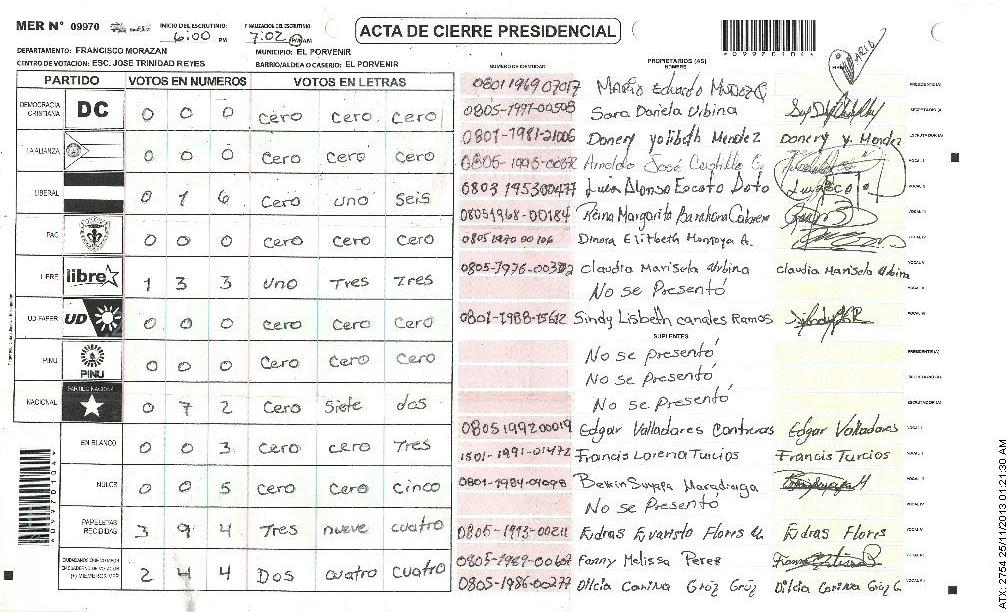 MER N° 09970 INICIO DEL ESCRUTINIO: 6:00 PM FINALIZACION DEL ESCRUTINIO: 7:02 PM AM
ACTA DE CIERRE PRESIDENCIAL
DEPARTAMENTO: FRANCISCO MORAZAN MUNICIPIO: EL PORVENIR
CENTRO DE VOTACION: ESC. JOSE TRINIDAD REYES BARRIO/ALDEA O CASERIO: EL PORVENIR
PARTIDO VOTOS EN NUMEROS VOTOS EN LETRAS
DEMOCRACIA CRISTIANA DC 0 0 0 cero cero cero
LA ALIANZA 0 0 0 cero cero cero
LIBERAL 0 1 6 cero uno seis
PAC 0 0 0 cero cero cero
LIBRE libre 1 3 3 uno Tres Tres
UD-FAPER UD 0 0 0 cero cero cero
PINU PINU 0 0 0 cero cero cero
NACIONAL PARTIDO NACIONAL 0 7 2 cero siete dos
EN BLANCO 0 0 3 cero cero Tres
NULOS 0 0 5 cero cero cinco
PAPELETAS RECIBIDAS 3 9 4 Tres nueve cuatro
2 4 4 Dos cuatro cuatro
NUMERO DE IDENTIDAD PROPIETARIOS (AS) NOMBRE
0801 1969 07017 Mario Eduardo PRESIDENTE (A)
0805-1997-00508 Sara Daniela Urbina SECRETARIO (A)
0801-1981-21006 Donery yolibeth Mendez Donery y. Mendez ESCRUTADOR (A)
Arnoldo José Castillo G VOCAL I
0803 195300477 Luis Alonso Escoto VOCAL II
08051968-00184 Reina Margarita Barahona VOCAL III
0805 1970 00106 Dinora Elizbeth Montoya A.
0805-1976-00332 Claudia Marisela Urbina Claudia Marisela Urbina
No se Presentó
0801-1988-15612 Sindy Lisbeth canales Ramos
SUPLENTES
No se presentó PRESIDENTE (A)
No se presentó SECRETARIO (A)
No se presentó ESCRUTADOR (A)
0805199200019 Edgar Valladares Contreras Edgar Valladares VOCAL I
1501-1991-01472 Francis Lorena Turcios Francis Turcios
0801-1984-04098 Maradiaga
No se Presentó
0805-1993-00211 Evaristo Flores Flores
Fanny Melissa Perez
0805-1986-00277 Dilcia Carina
09970104
ATX: 2754 25/11/2013 01:21:30 AM